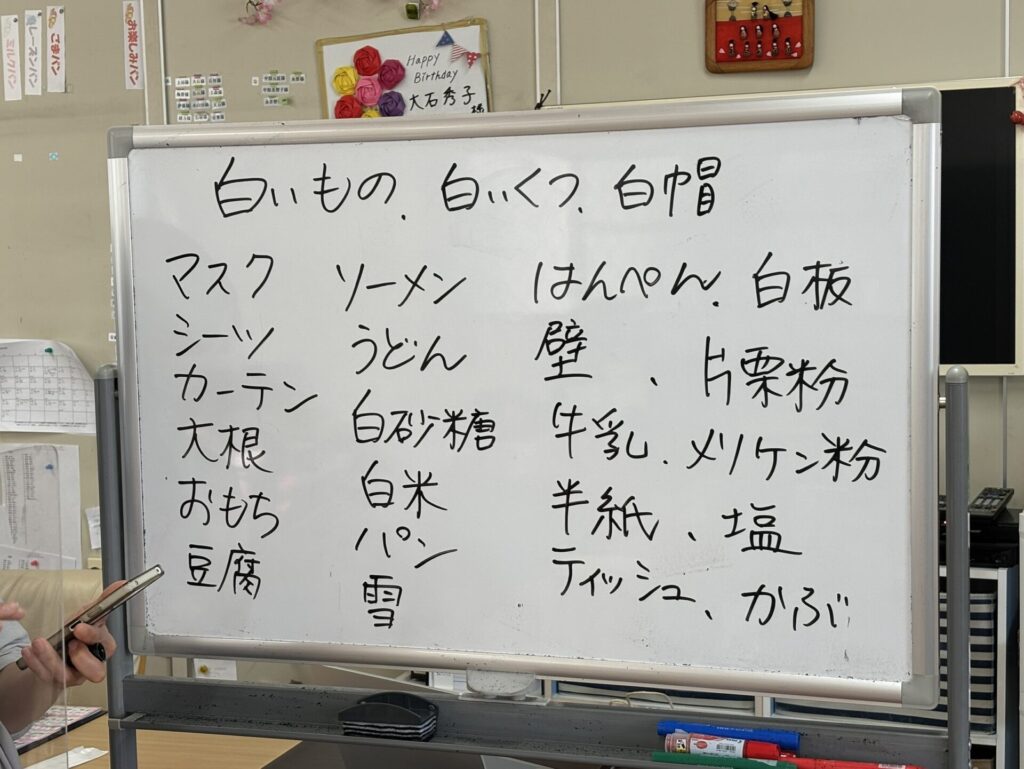 お楽しみパン
ごまパン
レーズンパン
ミルクパン
Happy
Birthday
大石秀子様
白いもの、白いくつ、白帽
マスク
シーツ
カーテン
大根
おもち
豆腐
ソーメン
うどん
白砂糖
白米
パン
雪
はんぺん、白板
壁、片栗粉
牛乳、メリケン粉
半紙、塩
ティッシュ、かぶ